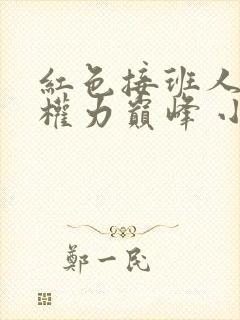 紅色接班人
權力巔峰 小
鄭一民